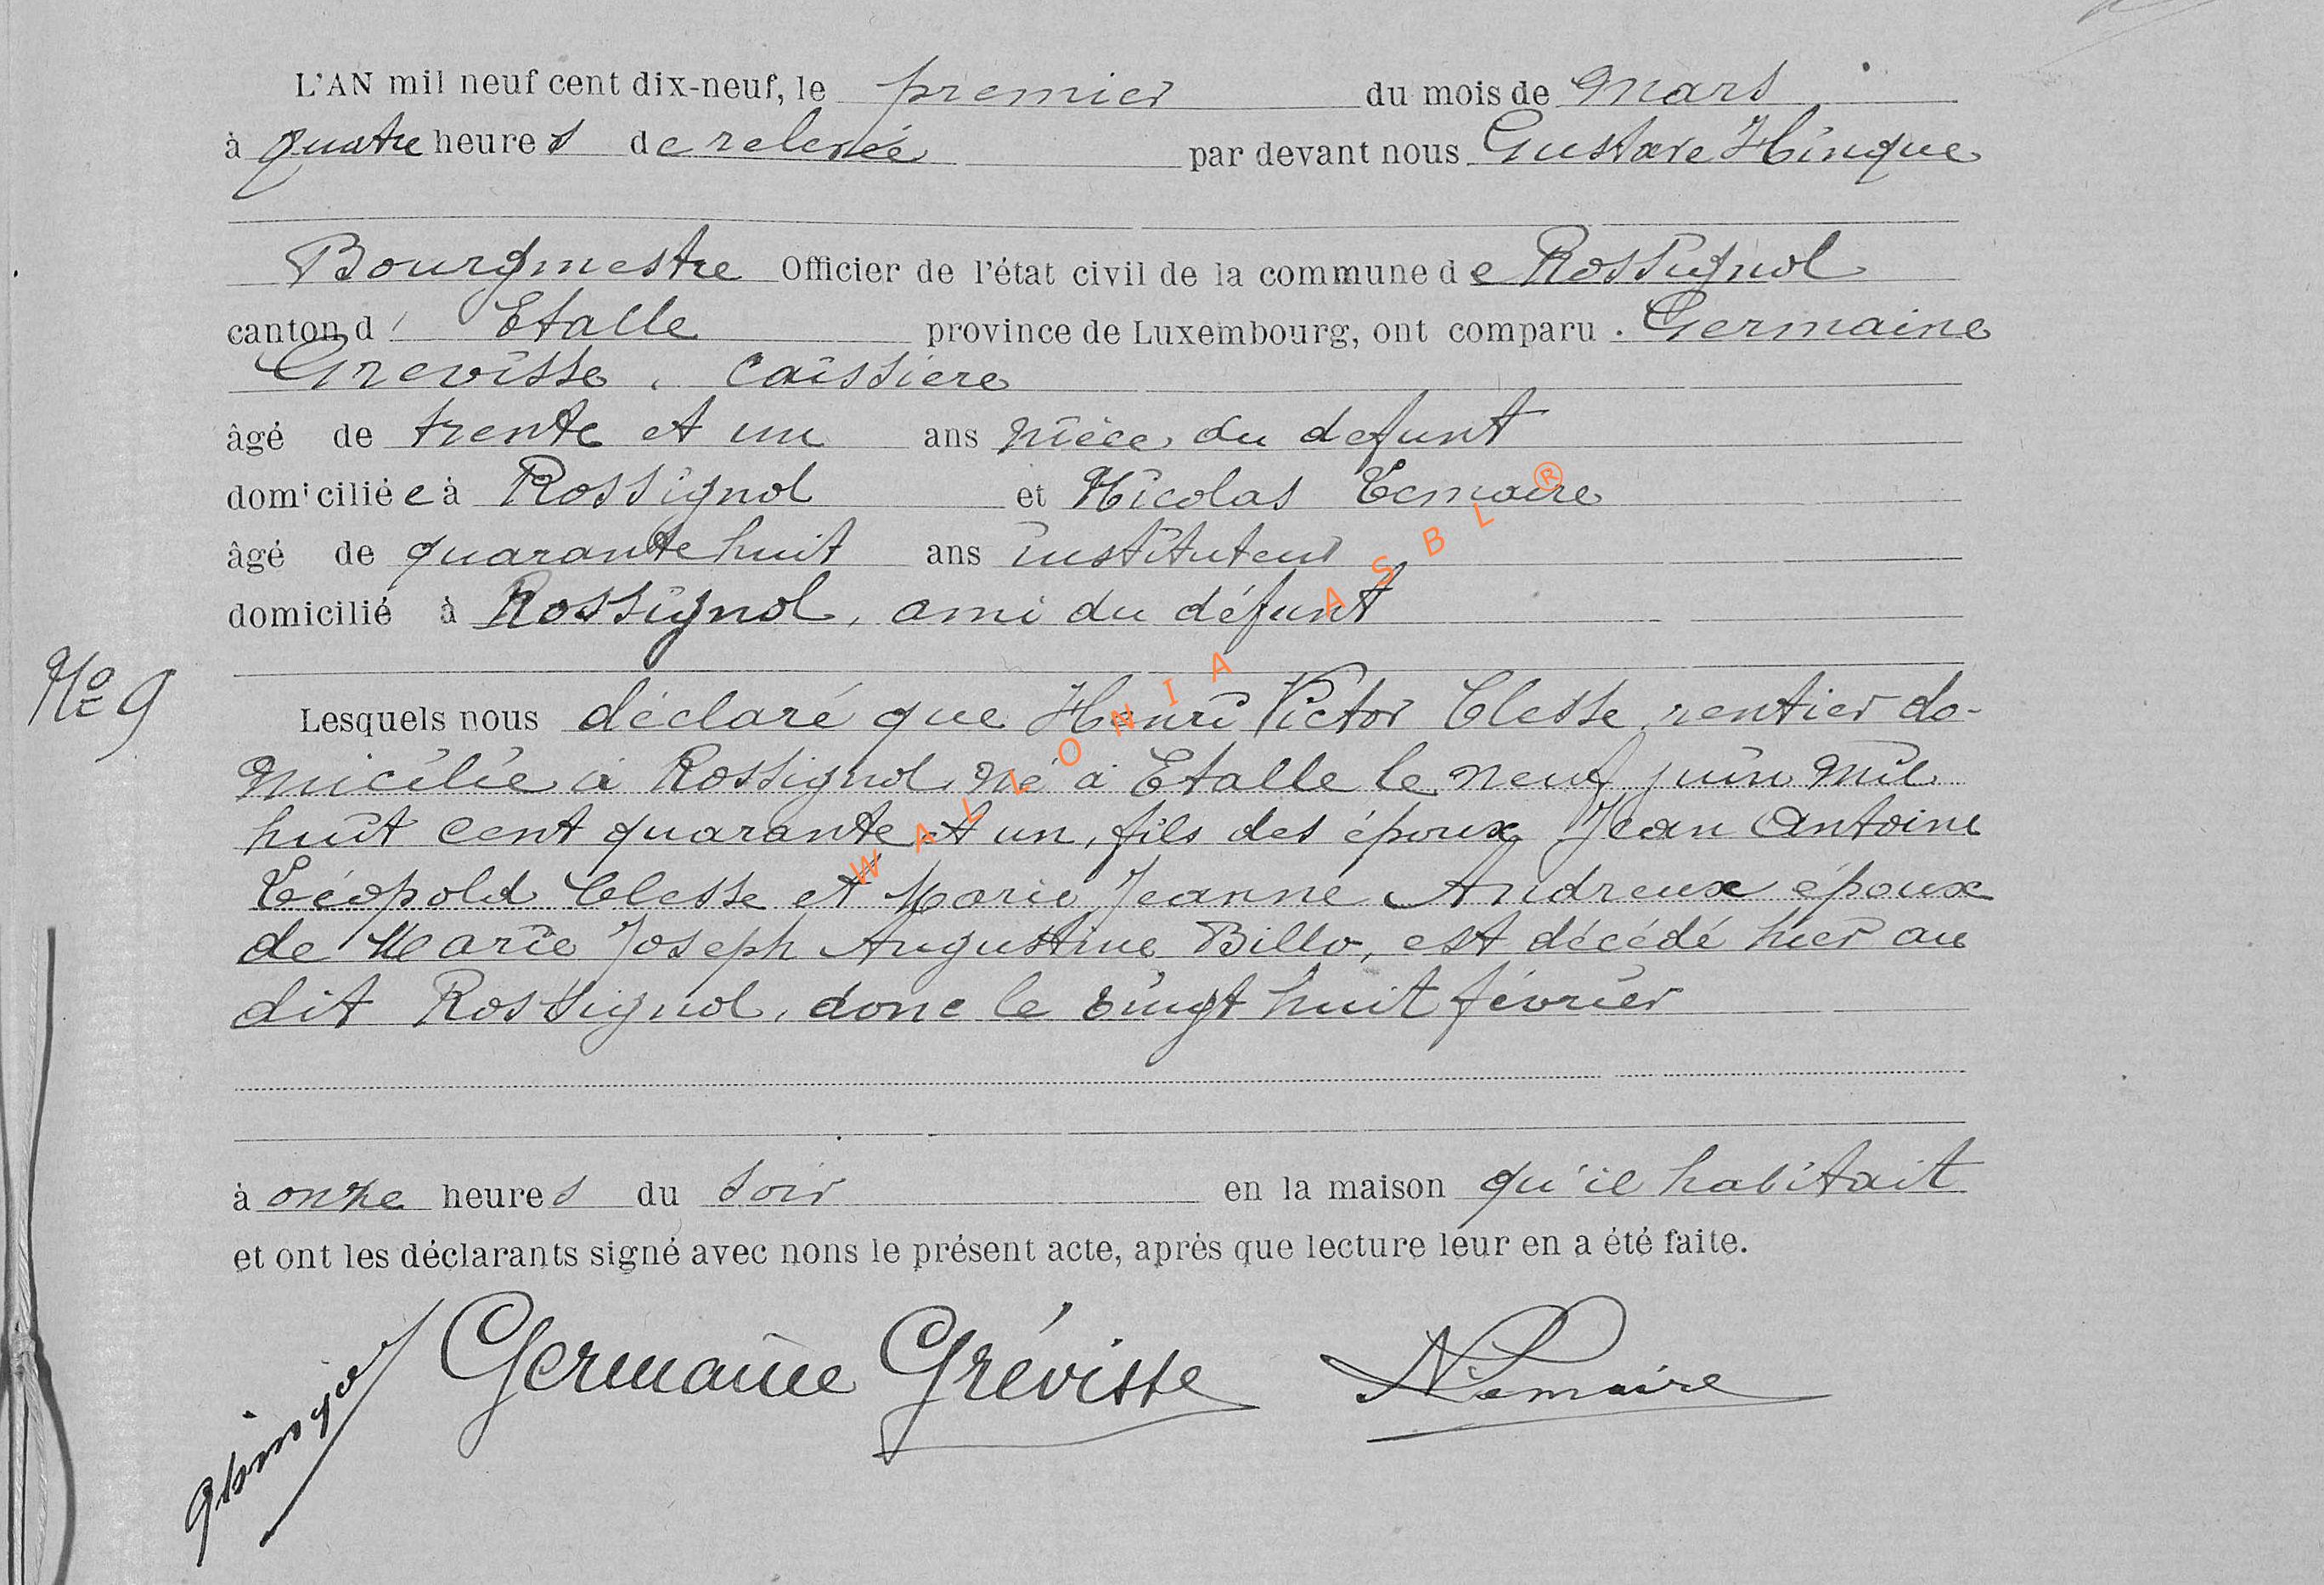 L'AN mil neuf cent dix-neuf, le premier du mois de Mars
à quatre heures de relevée par devant nous Gustave Hinque
Bourgmestre Officier de l'état civil de la commune de Rossignol
canton d' Etalle province de Luxembourg, ont comparu . Germaine
Grevisse, caissiere
âgé de trente et un ans nièce du defunt
domiciliée à Rossignol et Nicolas Lemaire
âgé de quarante huit ans instituteur
domicilié à Rossignol, ami du défunt
No 9
Lesquels nous déclaré que Henri Victor Clesse, rentier do-
micilié à Rossignol, né à Etalle le neuf juin mil
huit cent quarante et un, fils des époux Jean Antoine
Léopold Clesse et Marie Jeanne Andreux époux
de Marie Joseph Augustine Billo, est décédé hier au
dit Rossignol, donc le vingt huit février
à onze heures du soir en la maison qu'il habitait
et ont les déclarants signé avec nons le présent acte, après que lecture leur en a été faite.
Germaine Grévisse NLemaire
WALLONIA ASBL ®